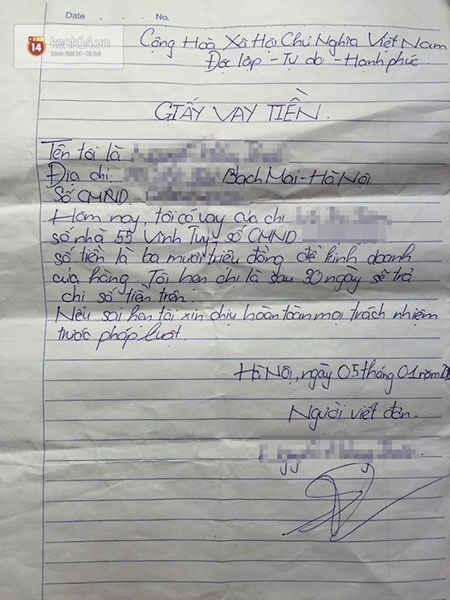 Date No.
14 kenh14.vn
Cộng Hoà Xã Hội Chủ Nghĩa Việt Nam
Độc lập - Tự do - Hạnh phúc
GIẤY VAY TIỀN.
Tên tôi là
Địa chỉ: Bạch Mai - Hà Nội
Số CMND
Hôm nay, tôi có vay của chị
số nhà 55 Vĩnh Tuy số CMND
số tiền là ba mươi triệu đồng để kinh doanh
cửa hàng. Tôi hẹn chị là sau 30 ngày sẽ trả
chị số tiền trên.
Nếu sai hẹn tôi xin chịu hoàn toàn mọi trách nhiệm
trước pháp luật.
Hà Nội, ngày 05 tháng 01 năm
Người viết đơn.